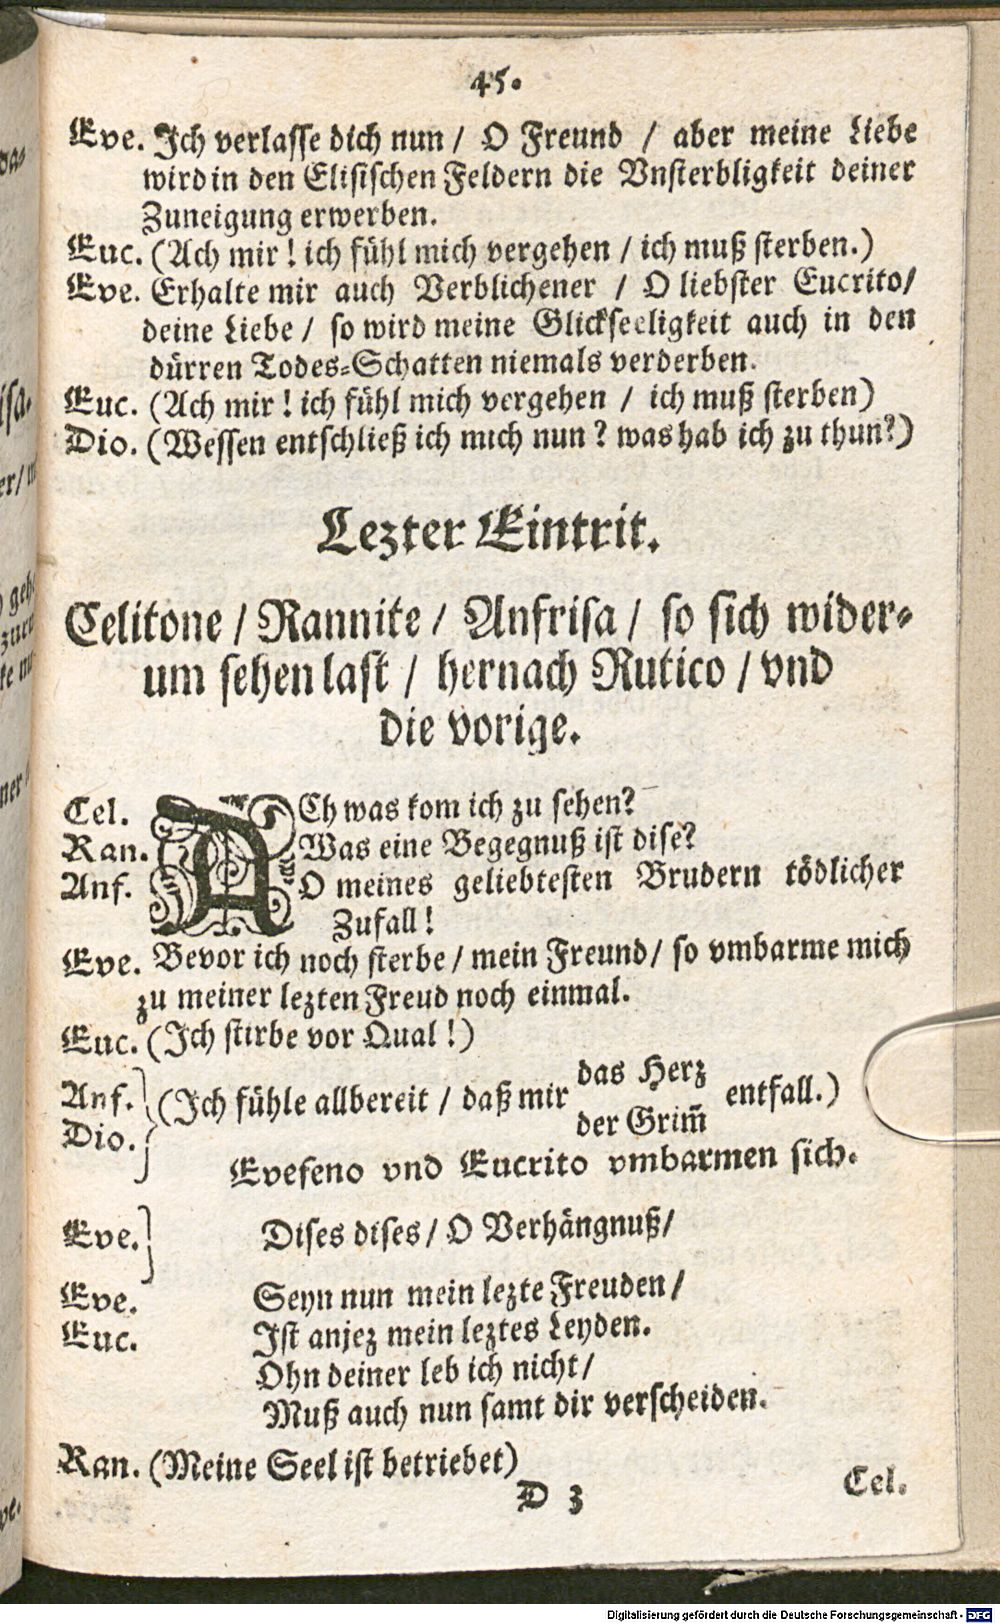 45.
Eve. Ich verlasse dich nun / O Freund / aber meine Liebe
wird in den Elisischen Feldern die Vnsterbligkeit deiner
Zuneigung erwerben.
Euc. (Ach mir! ich fühl mich vergehen / ich muß sterben.)
Eve. Erhalte mir auch Verblichener / O liebster Eucrito/
deine Liebe / so wird meine Glickseeligkeit auch in den
dürren Todes-Schatten niemals verderben.
Euc. (Ach mir! ich fühl mich vergehen / ich muß sterben)
Dio. (Wessen entschließ ich mich nun? was hab ich zu thun?)
Lezter Eintrit.
Celitone / Rannite / Anfrisa / so sich wider-
um sehen last / hernach Rutico / vnd
die vorige.
Cel. ACh was kom ich zu sehen?
Ran. Was eine Begegnuß ist dise?
Anf. O meines geliebtesten Brudern tödlicher
Zufall!
Eve. Bevor ich noch sterbe / mein Freund / so vmbarme mich
zu meiner lezten Freud noch einmal.
Euc. (Ich stirbe vor Qual!)
Anf. } (Ich fühle allbereit / daß mir das Herz entfall.)
Dio. } der Grim̃
Evefeno vnd Eucrito vmbarmen sich.
Eve.} Dises dises / O Verhängnuß/
Eve. Seyn nun mein lezte Freuden /
Euc. Ist anjez mein leztes Leyden.
Ohn deiner leb ich nicht/
Muß auch nun samt dir verscheiden.
Ran. (Meine Seel ist betriebet)
D 3
Cel.
Digitalisierung gefördert durch die Deutsche Forschungsgemeinschaft - DFG